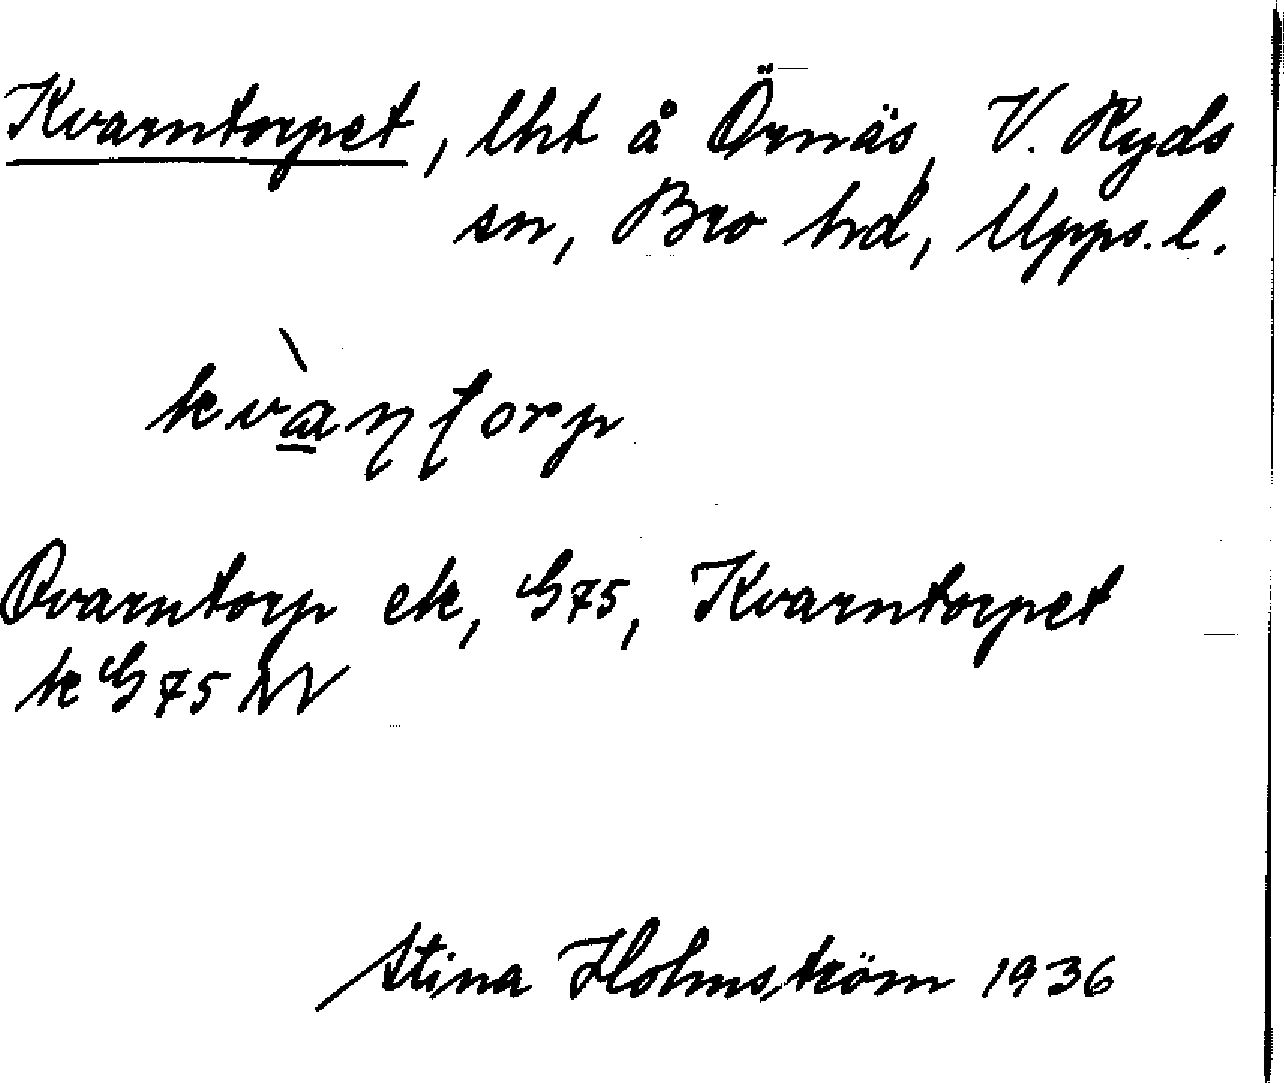 Kvarntorpet, lht å Örnäs, V. Ryds
sn, Bro hd, Upps. l.
kvàɳʈorp
Qvarntorp ek, G75, Kvarntorpet
k G75
Stina Holmström 1936